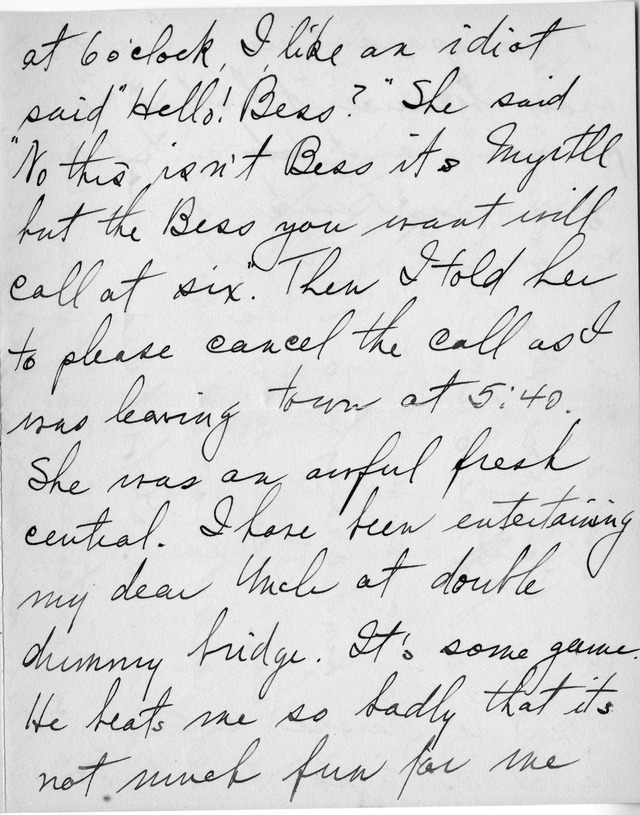 at 6 o'clock, I, like an idiot
said "Hello! Bess?" She said
"No this isn't Bess its Myrtll
but the Bess you want will
call at six". Then I told her
to please cancel the call as I
was leaving town at 5:40.
She was an awful fresh
central. I have been entertaining
my dear Uncle at double
dummy bridge. It's some game.
He beats me so badly that its
not much fun for me